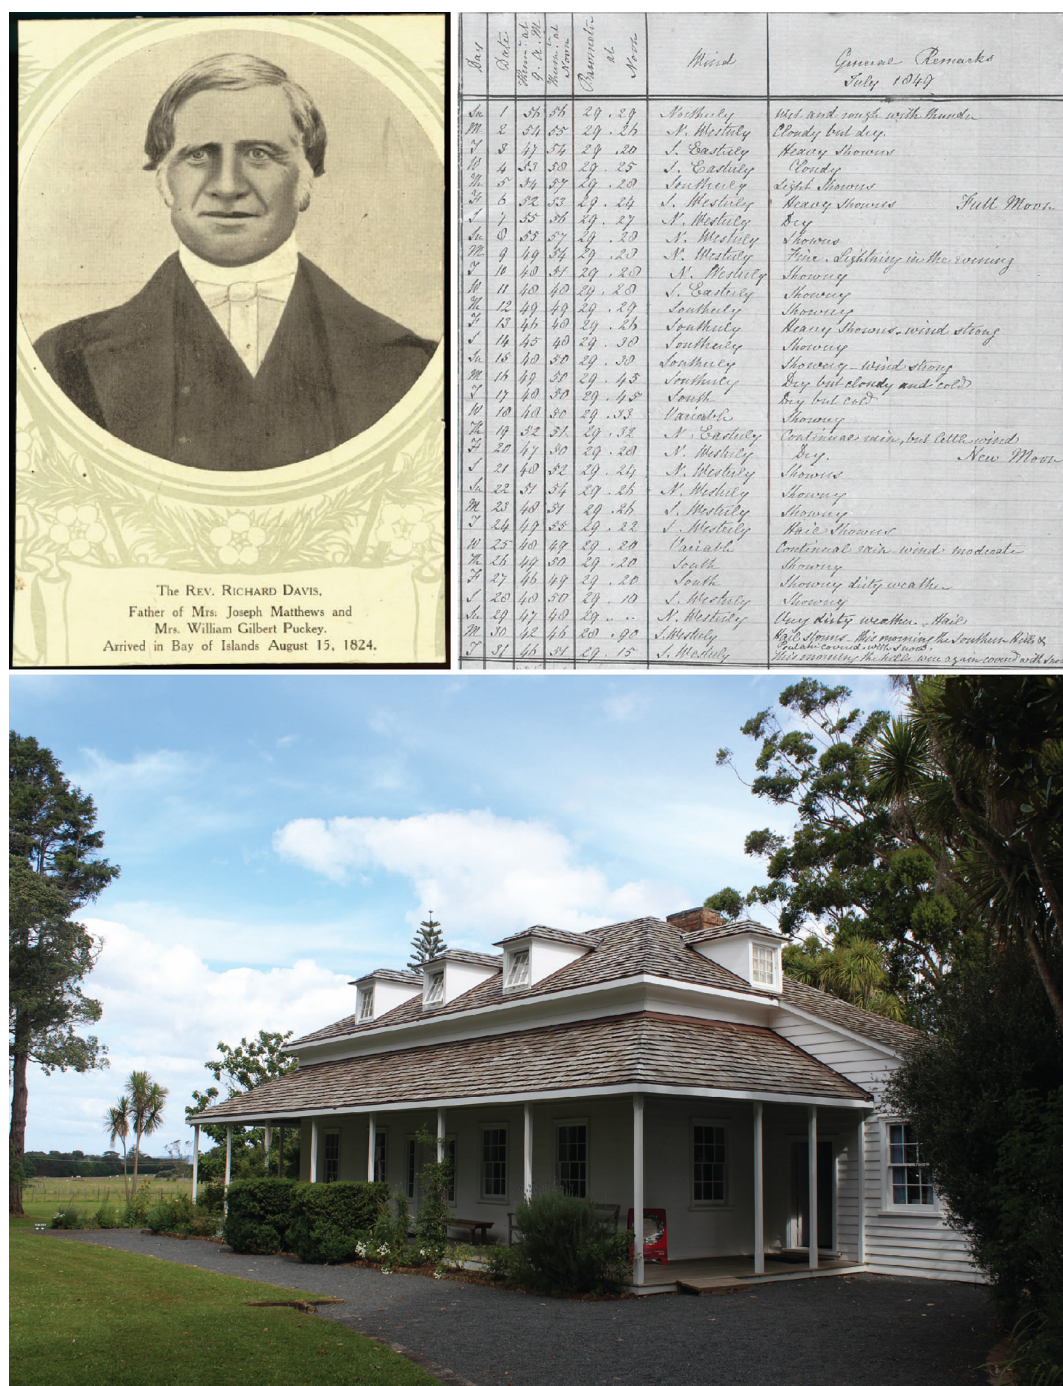 The REV. RICHARD DAVIS,
Father of Mrs. Joseph Matthews and
Mrs. William Gilbert Puckey.
Arrived in Bay of Islands August 15, 1824.
Day Date Therm. at 9 A.M Therm. at Noon Barometer at Noon Wind General Remarks
July 1849
Su 1 56 56 29.29 Northerly Wet and rough with thunder
M 2 54 55 29.26 N. Westerly Cloudy but dry.
T 3 47 54 29.20 S. Easterly Heavy Showers
W 4 53 58 29.25 S. Easterly Cloudy
Th 5 54 57 29.28 Southerly Light Showers
F 6 52 53 29.24 S. Westerly Heavy Showers Full Moon
S 7 55 56 29.27 N. Westerly Dry
Su 8 55 57 29.28 N. Westerly Showers
M 9 49 54 29.28 N. Westerly Fine. Lightning in the evening
T 10 48 51 29.28 N. Westerly Showery
W 11 48 48 29.28 S. Easterly Showery
Th 12 49 49 29.29 Southerly Showery
F 13 46 48 29.26 Southerly Heavy Showers, wind strong
S 14 45 48 29.38 Southerly Showery
Su 15 48 50 29.38 Southerly Showery - wind strong
M 16 49 50 29.45 Southerly Dry but cloudy and cold
T 17 48 50 29.45 South Dry but cold
W 18 48 50 29.33 Variable Showery
Th 19 52 51 29.32 N. Easterly Continual rain, but little wind
F 20 47 50 29.28 N. Westerly Dry. New Moon
S 21 48 52 29.24 N. Westerly Showers
Su 22 51 54 29.26 N. Westerly Showery
M 23 48 51 29.26 S. Westerly Showery
T 24 49 55 29.22 S. Westerly Hail Showers
W 25 48 49 29.20 Variable Continual rain wind moderate
Th 26 49 50 29.20 South Showery
F 27 46 49 29.20 South Showery dirty weather
S 28 48 50 29.10 S. Westerly Showery
Su 29 47 48 29. .. N. Westerly Very dirty weather. Hail
M 30 42 46 28.90 S. Westerly Hail storms. this morning the Southern Hills &
covered with snow.
T 31 46 51 29.15 S. Westerly This morning the hills were again covered with